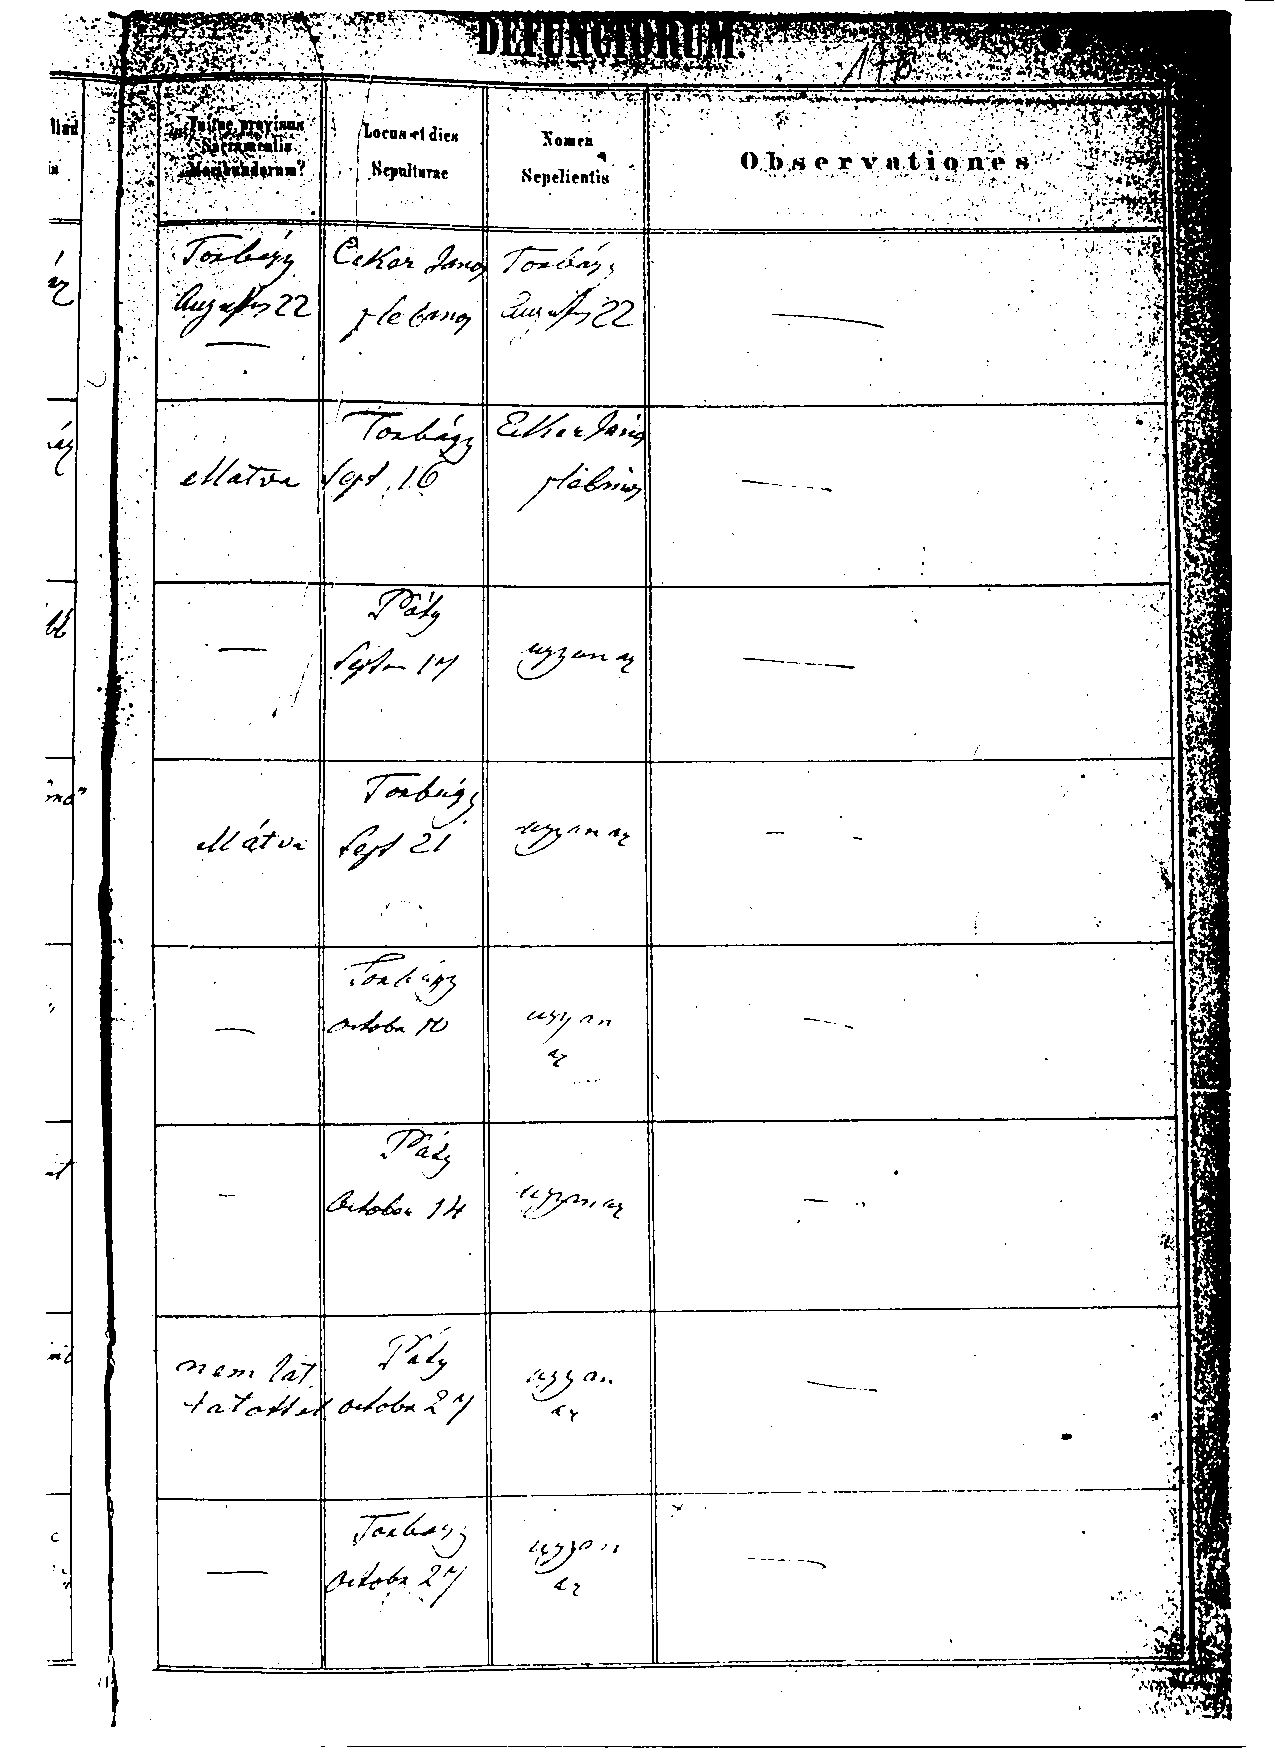 DEFUNCTORUM.
Fuitne provisus
Sacramentis
Moribundorum?
Locus et dies
Sepulturae
Nomen
Sepelientis
Observationes
Torbágy
Augustus 22
Ecker János
plébános
Torbágy
Augustus 22
Torbágy
Sept. 16
Ecker János
plébános
Páty
Septem 17
ugyan az
Torbágy
Sept 21
ugyan az
Torbágy
October 10
ugyan
az
Páty
October 14
ugyan az
nem lát
tatott el
Páty
October 27
ugyan
az
Torbágy
October 27
ugyan
az